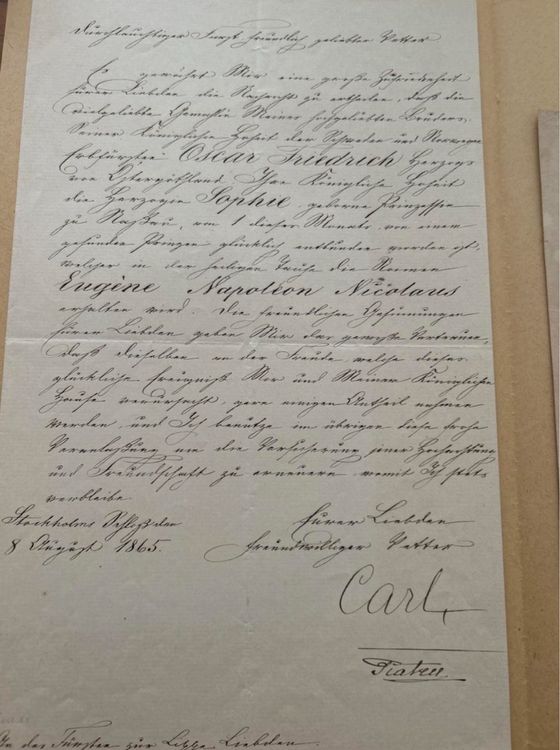 Durchlauchtiger Fürst, freundlich geliebter Vetter
Es gewährt Mir eine große Zufriedenheit
Eurer Liebden die Nachricht zu ertheilen, daß die
vielgeliebte Gemahlin Meines hochgeliebten Bruders,
Seiner Königlichen Hoheit der Schweden und Norwegen
Erbfürsten Oscar Friedrich Herzogs
von Ostgothland Ihre Königliche Hoheit
die Herzogin Sophie, geborne Prinzessin
zu Nassau, am 1 dieses Monats, von einem
gesunden Prinzen glücklich entbunden worden ist,
welcher in der heiligen Taufe die Namen
Eugène Napoléon Nicolaus
erhalten wird. Die freundlichen Gesinnungen
Eurer Liebden geben Mir das gewisse Vertrauen,
daß dieselben an der Freude welche dieses
glückliche Ereigniß Mir und Meinem Königlichen
Hause verursacht, gern einigen Antheil nehmen
werden, und Ich benutze im übrigen diese frohe
Veranlaßung um die Versicherung jener Hochachtung
und Freundschaft zu erneuern womit Ich stets
verbleibe
Eurer Liebden
Stockholms Schloß den
freundwilliger Vetter
8 August 1865.
Carl
An des Fürsten zur Lippe Liebden